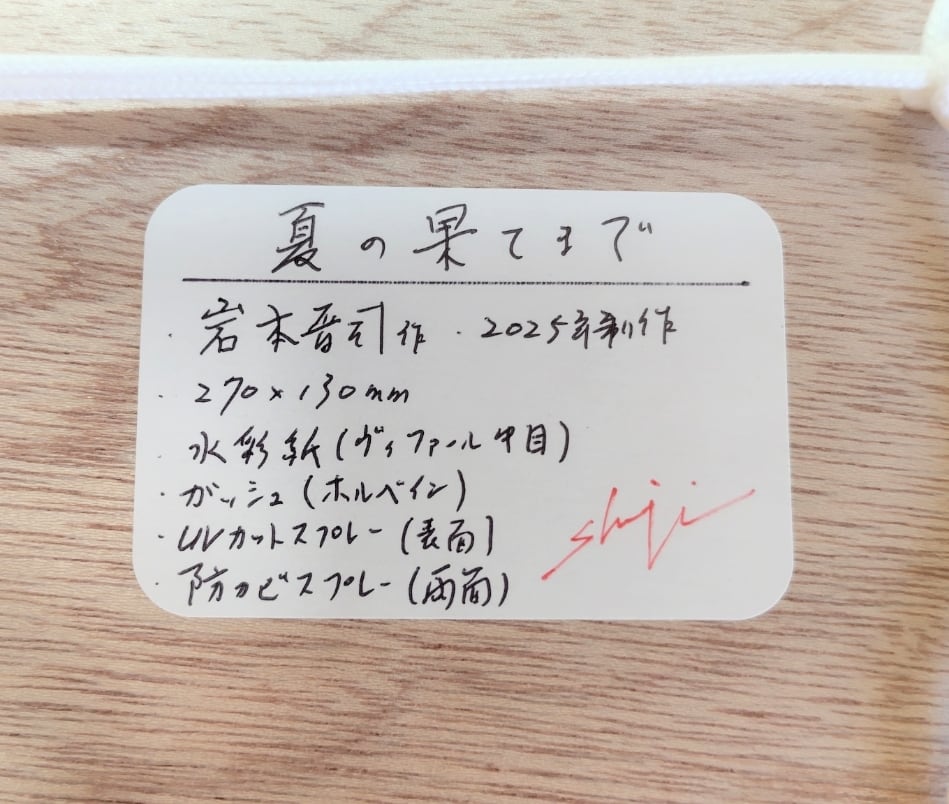 夏の果てまで
・岩本晋司作 ・2025年制作
・270×130mm
・水彩紙(ヴィファール中目)
・ガッシュ(ホルベイン)
・UVカットスプレー(表面)
・防カビスプレー(両面)
shinji